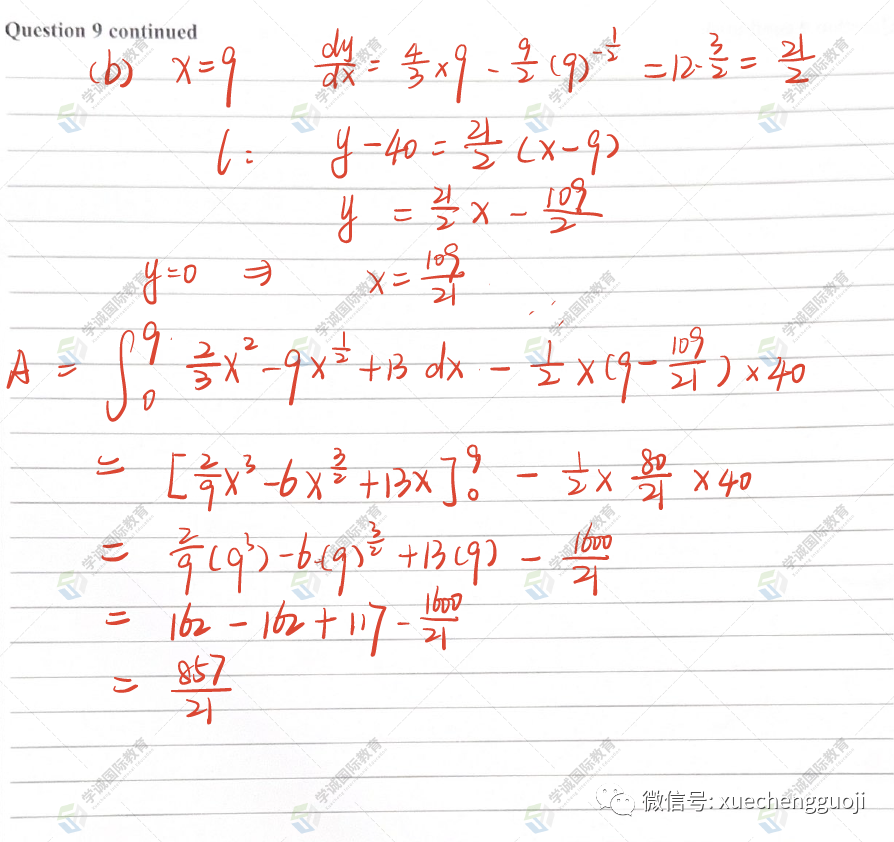 Question 9 continued
(b) x=9 dy/dx = 4/3 ×9 - 9/2 (9)^{-1/2} = 12 - 3/2 = 21/2
l: y-40 = 21/2 (x-9)
y = 21/2 x - 109/2
y=0 ⇒ x = 109/21
A = ∫_0^9 2/3 x^2 - 9x^{1/2} + 13 dx - 1/2 × (9 - 109/21) × 40
= [2/9 x^3 - 6x^{3/2} + 13x]_0^9 - 1/2 × 80/21 × 40
= 2/9 (9^3) - 6·(9)^{3/2} + 13(9) - 1600/21
= 162 - 162 + 117 - 1600/21
= 857/21
学诚国际教育
微信号: xuechengguoji